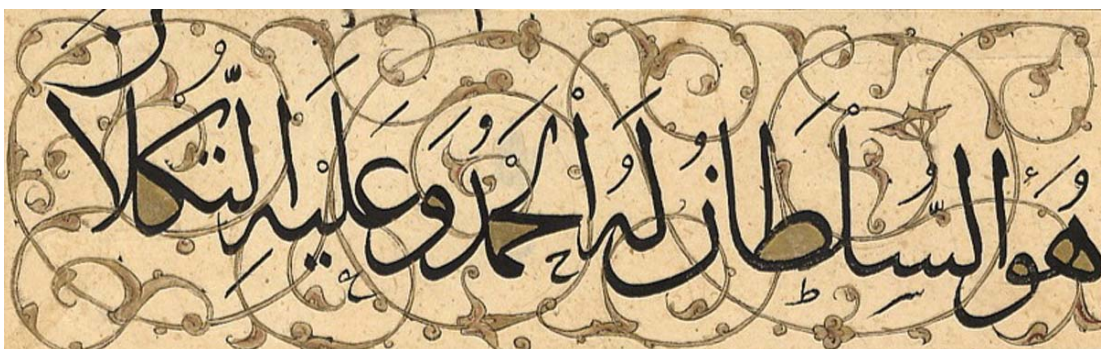 هُوَ السُّلْطَانُ لَهُ الْحَمْدُ وَعَلَيْهِ التُّكْلَانُ